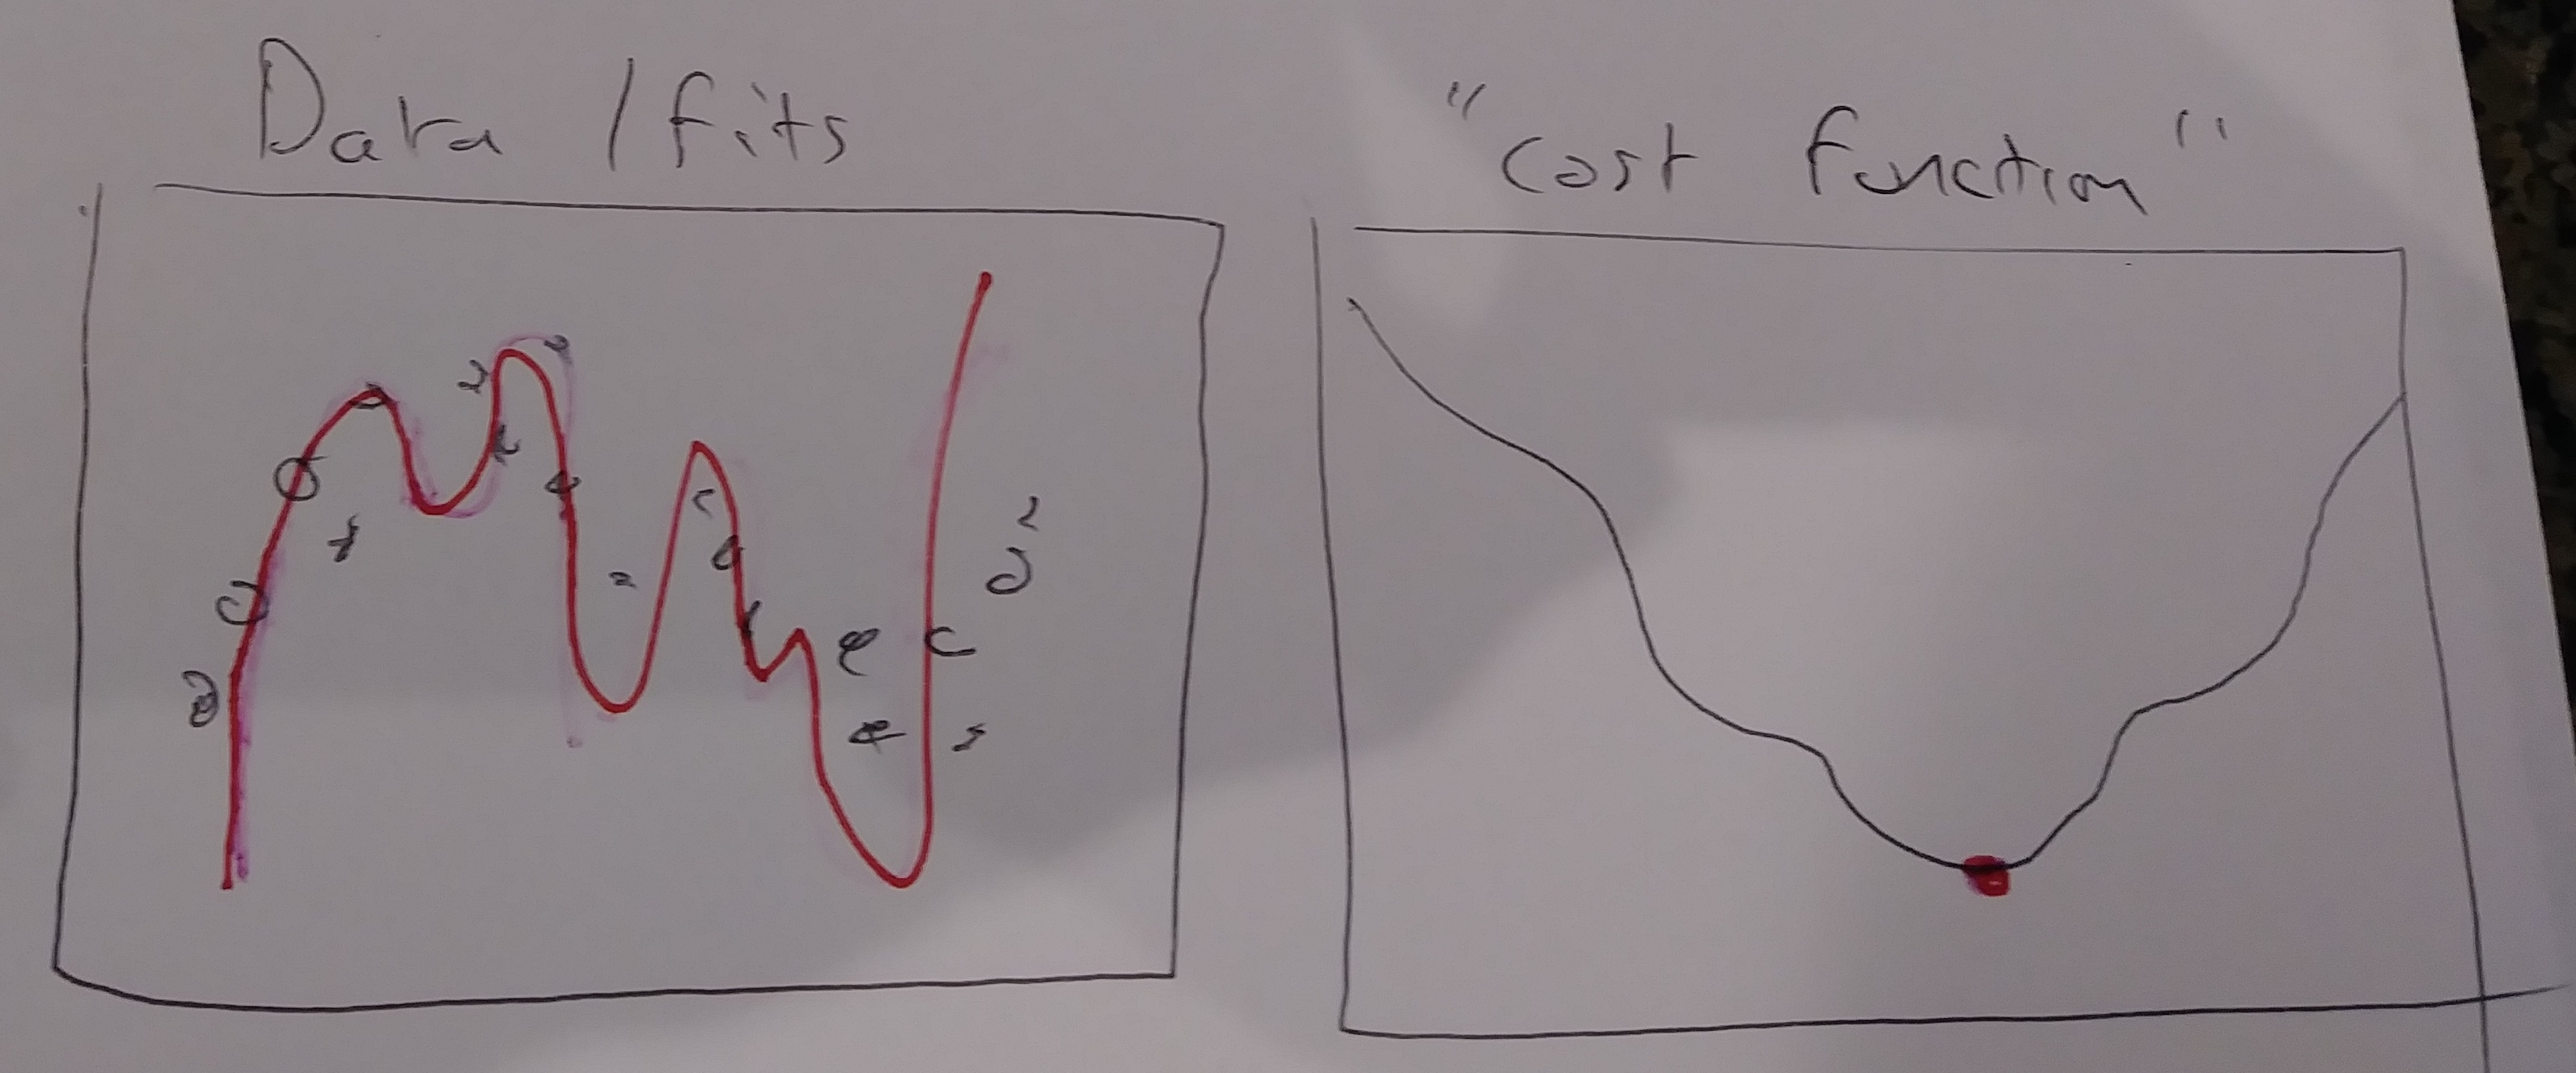 Data / fits
"Cost function"